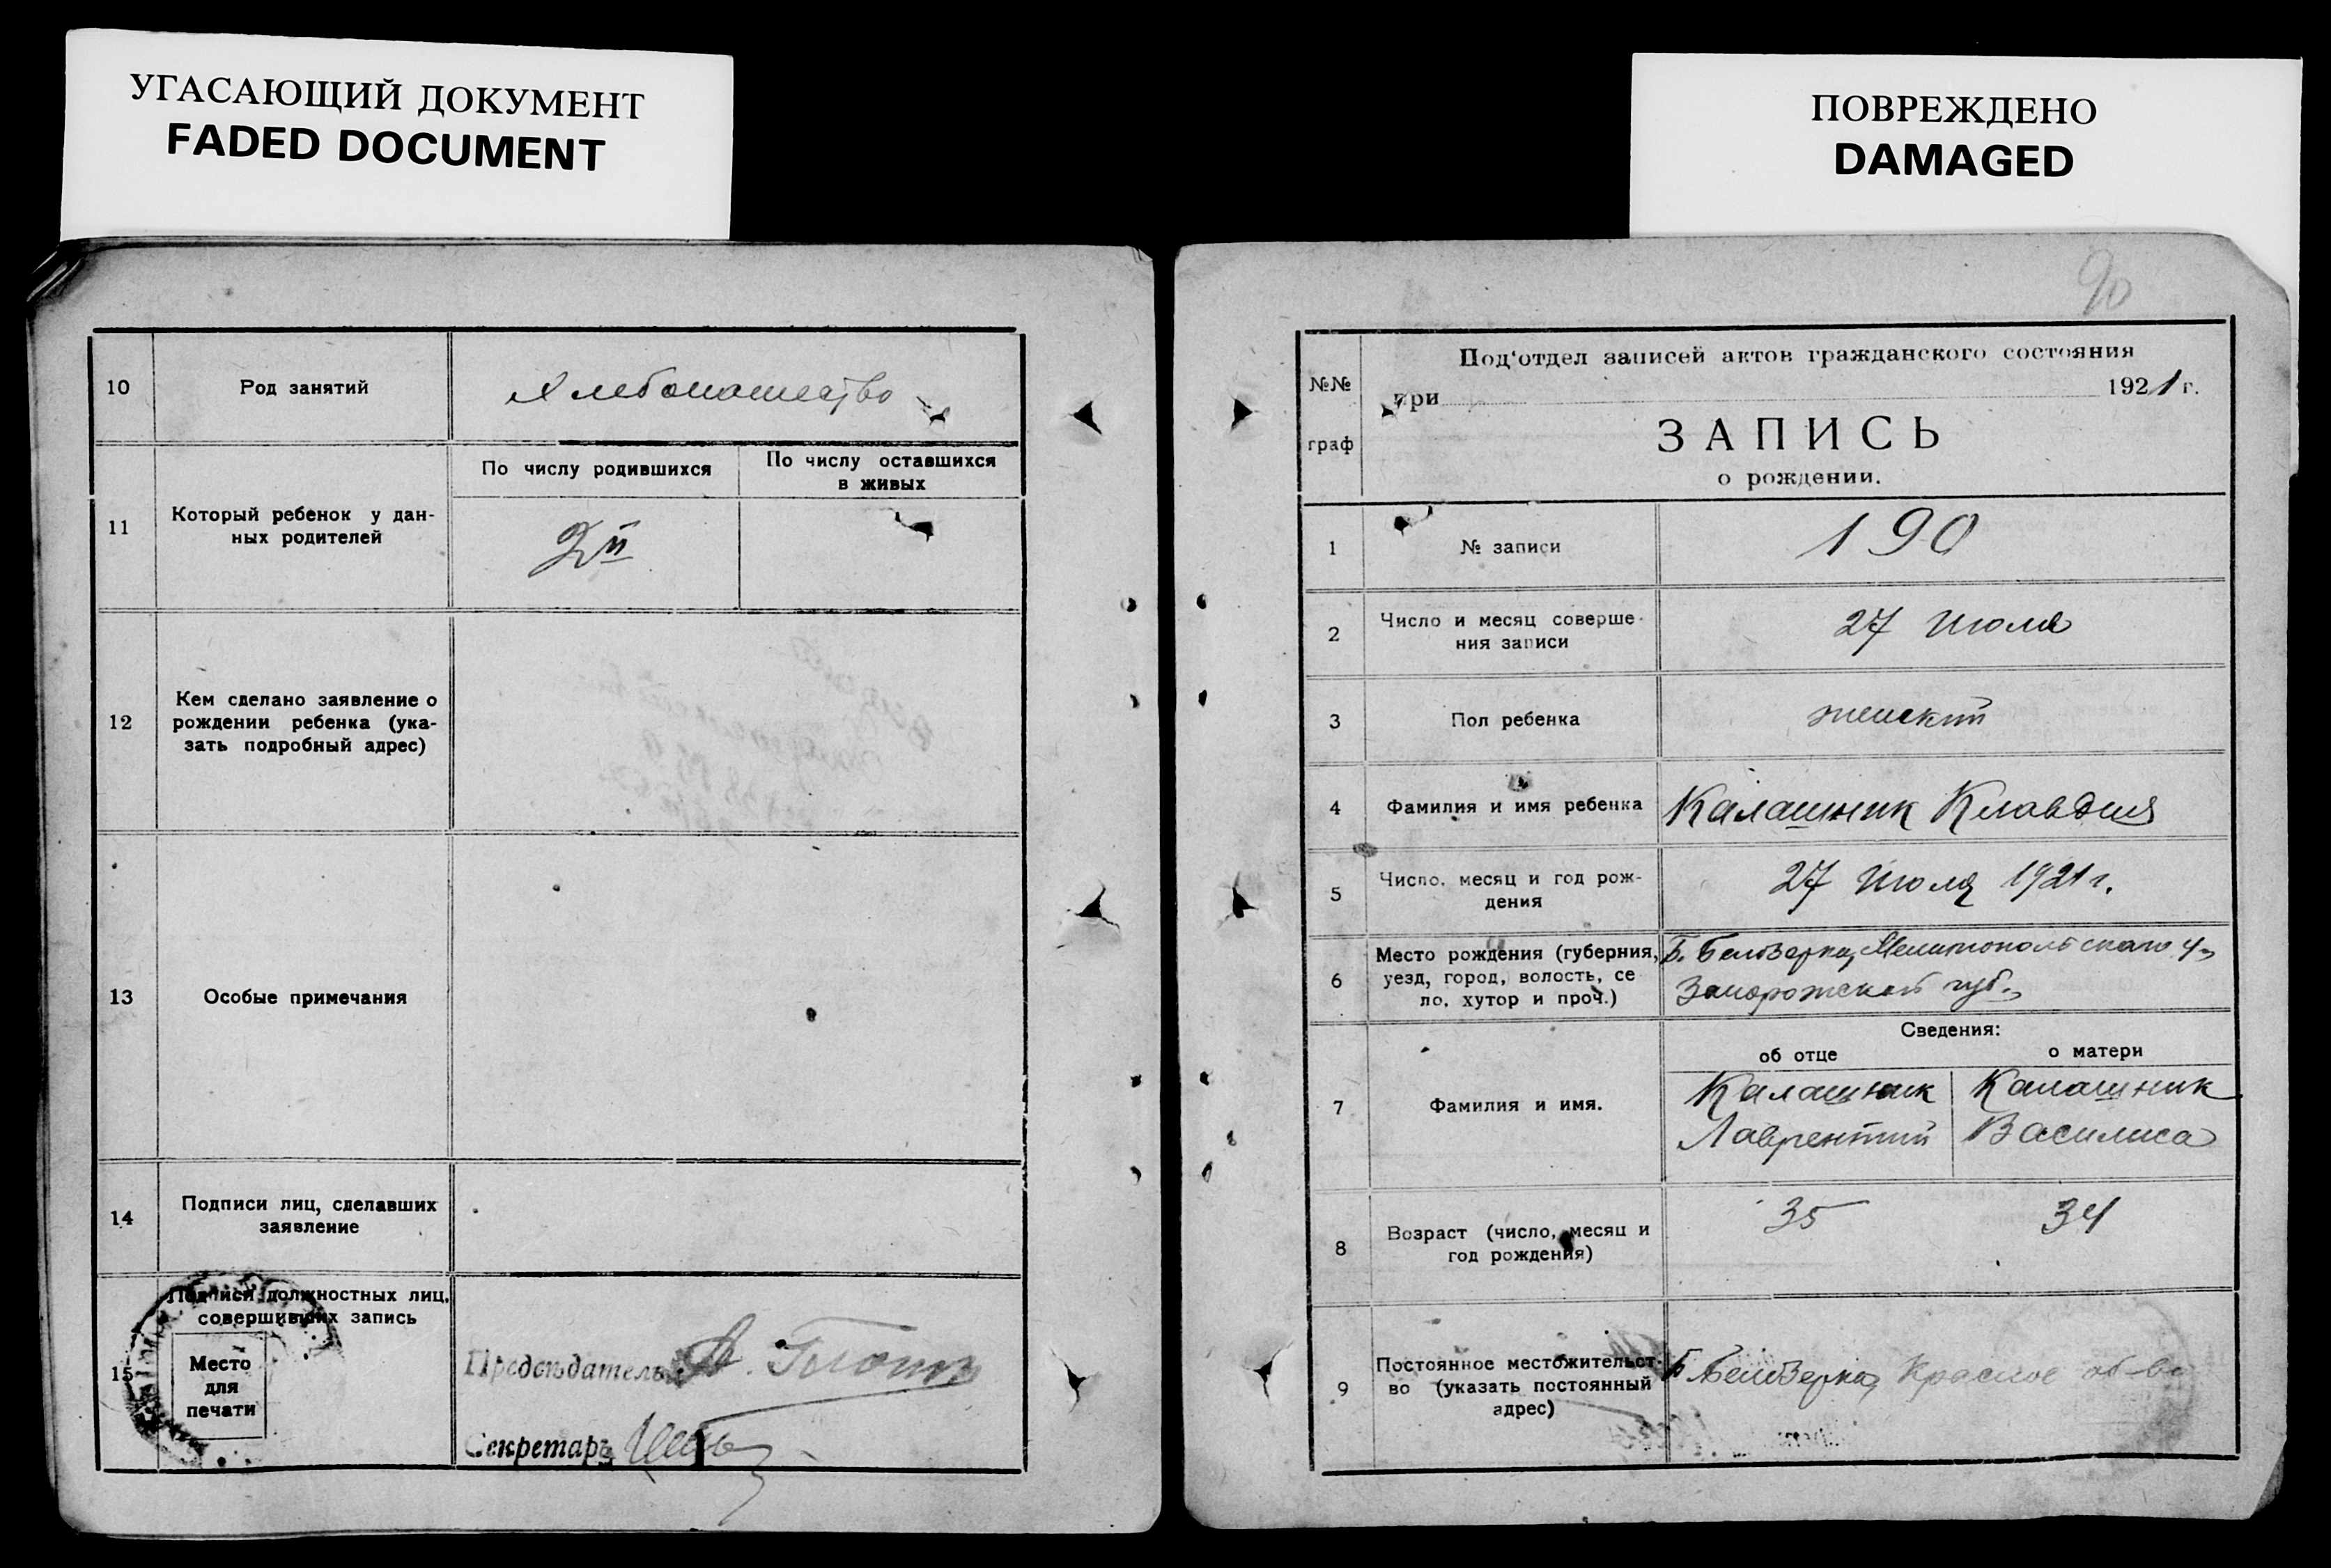 УГАСАЮЩИЙ ДОКУМЕНТ
FADED DOCUMENT
10
Род занятий
Хлебопашество
11
Который ребенок у дан-
ных родителей
По числу родившихся
По числу оставшихся
в живых
2й
12
Кем сделано заявление о
рождении ребенка (ука-
зать подробный адрес)
13
Особые примечания
14
Подписи лиц, сделавших
заявление
15
Подписи должностных лиц,
совершивших запись
Место
для
печати
Предсѣдатель
Секретарь
ПОВРЕЖДЕНО
DAMAGED
90
№№
граф
Под'отдел записей актов гражданского состояния
при 1921 г.
ЗАПИСЬ
о рождении.
1
№ записи
190
2
Число и месяц соверше-
ния записи
27 Июля
3
Пол ребенка
женский
4
Фамилия и имя ребенка
Калашник Клавдия
5
Число, месяц и год рож-
дения
27 Июля 1921 г.
6
Место рождения (губерния,
уезд, город, волость, се
ло, хутор и проч.)
Б. Белозерка, Мелитопольскаго у.
Запорожской губ.
Сведения:
об отце
о матери
7
Фамилия и имя.
Калашник
Лаврентий
Калашник
Василиса
8
Возраст (число, месяц и
год рождения)
35
34
9
Постоянное местожительст-
во (указать постоянный
адрес)
Б. Белозерка, Красное об-во